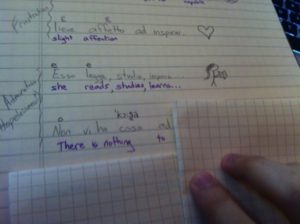 Frustration
e e
Lieve affetto ad inspirar...
slight affection
e e
Essa legge, studia, impara...
she reads, studies, learns...
Admiration
Hopelessness
Non vi ha cosa ad
There is nothing to